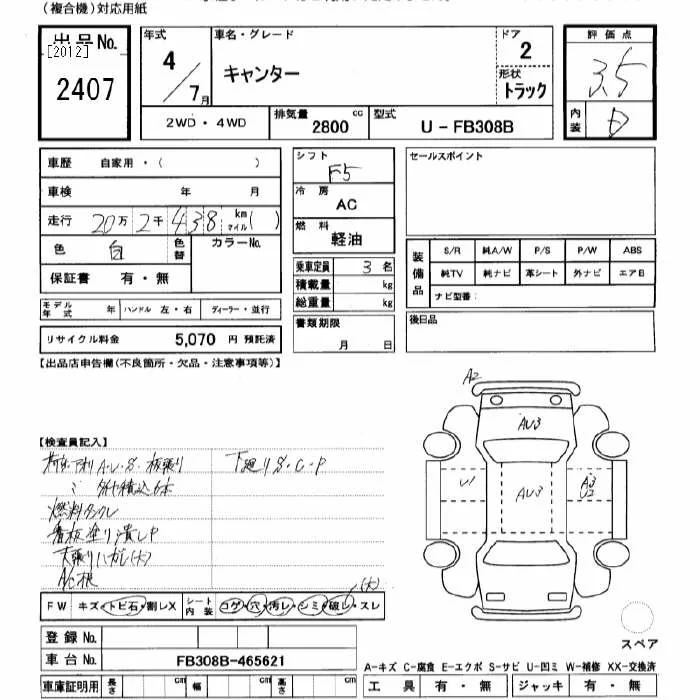 (複合機)対応用紙
出品No. [2012] 2407
年式 4/7月
車名・グレード キャンター
ドア 2
形状 トラック
評価点 3.5
内装 D
2WD・4WD
排気量 2800 cc
型式 U-FB308B
車歴 自家用・( )
車検 年 月
走行 20万2千438 km マイル( )
色 白 色替 カラーNo.
保証書 有・無
シフト F5
冷房 AC
燃料 軽油
乗車定員 3名
積載量 kg
総重量 kg
書類期限 月 日
セールスポイント
装備品 S/R 純A/W P/S P/W ABS
純TV 純ナビ 革シート 外ナビ エアB
ナビ型番:
モデル年式 年 ハンドル 左・右 ディーラー・並行
リサイクル料金 5,070 円 預託済
後日品
【出品店申告欄(不良箇所・欠品・注意事項等)】
【検査員記入】
A・U・S・板張り
下廻りS・C・P
燃料タンク
看板塗り潰しP
天張りハガレ(大)
(大)
FW キズ・トビ石・割レX シート内装 コゲ・穴・汚レ・シミ・破レ・スレ
登録No.
車台No. FB308B-465621
車庫証明用 長さ cm 幅 cm 高さ cm
A2
AU3
U1
AU3
A3
U2
スペア
A-キズ C-腐食 E-エクボ S-サビ U-凹ミ W-補修 XX-交換済
工具 有・無 ジャッキ 有・無